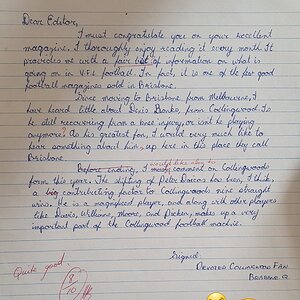 Dear Editor,
I must congratulate you on your excellent
magazine. I thoroughly enjoy reading it every month. It
provides me with a fair bit of information on what is
going on in V.F.L football. In fact, it is one of the few good
football magazines sold in Brisbane.
Since moving to Brisbane from Melbourne, I
have heard little about Denis Banks, from Collingwood. Is
he still recovering from a knee injury, or isn't he playing
anymore? As his greatest fan, I would very much like to
hear something about him, up here in this place they call
Brisbane.
would like to
Before ending, I comment on Collingwoods
form this year. The shifting of Peter Daicos has been, I think,
a big contributing factor to Collingwoods nine straight
wins. He is a magnificent player, and along with other players
like Davis, Williams, Moore, and Picken, makes up a very
important part of the Collingwood football machine.
Signed
Devoted Collingwood Fan
Brisbane Q
Quite good.
8
10